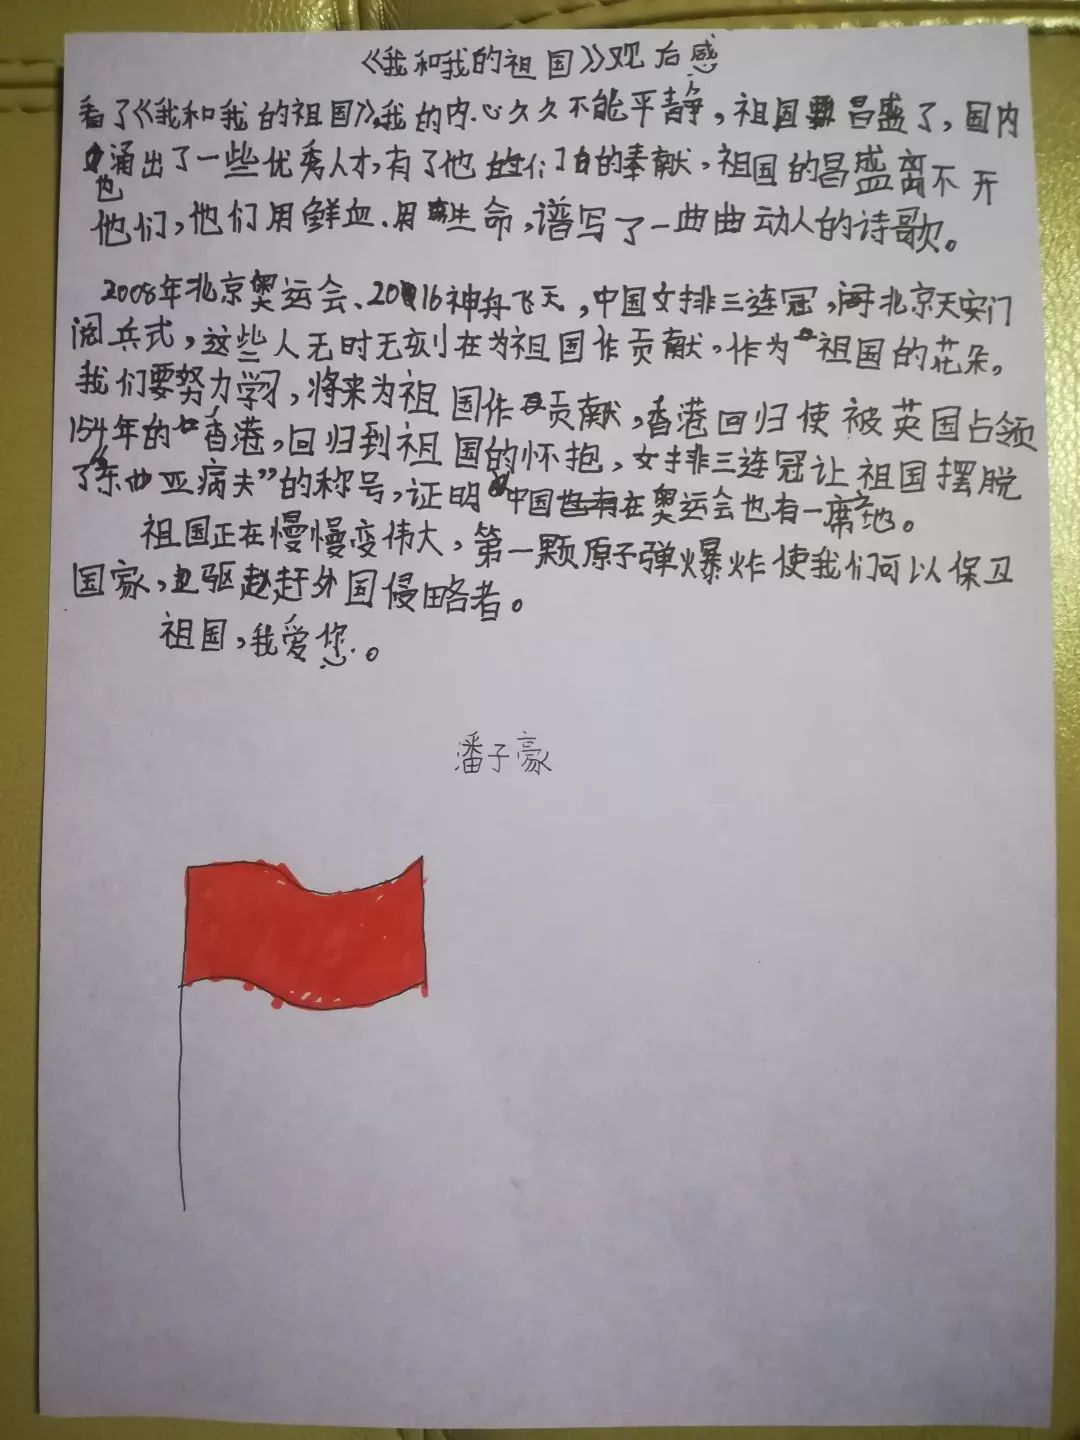 《我和我的祖国》观后感
看了《我和我的祖国》,我的内心久久不能平静,祖国昌盛了,国内
也涌出了一些优秀人才,有了他们的奉献,祖国的昌盛离不开
他们,他们用鲜血、用生命,谱写了一曲曲动人的诗歌。
2008年北京奥运会、2016神舟飞天,中国女排三连冠,北京天安门
阅兵式,这些人无时无刻在为祖国作贡献,作为祖国的花朵。
我们要努力学习,将来为祖国作贡献,香港回归使被英国占领
154年的香港,回归到祖国的怀抱,女排三连冠让祖国摆脱
了“东亚病夫”的称号,证明中国在奥运会也有一席之地。
祖国正在慢慢变伟大,第一颗原子弹爆炸使我们可以保卫
国家,驱赶外国侵略者。
祖国,我爱您。
潘子豪